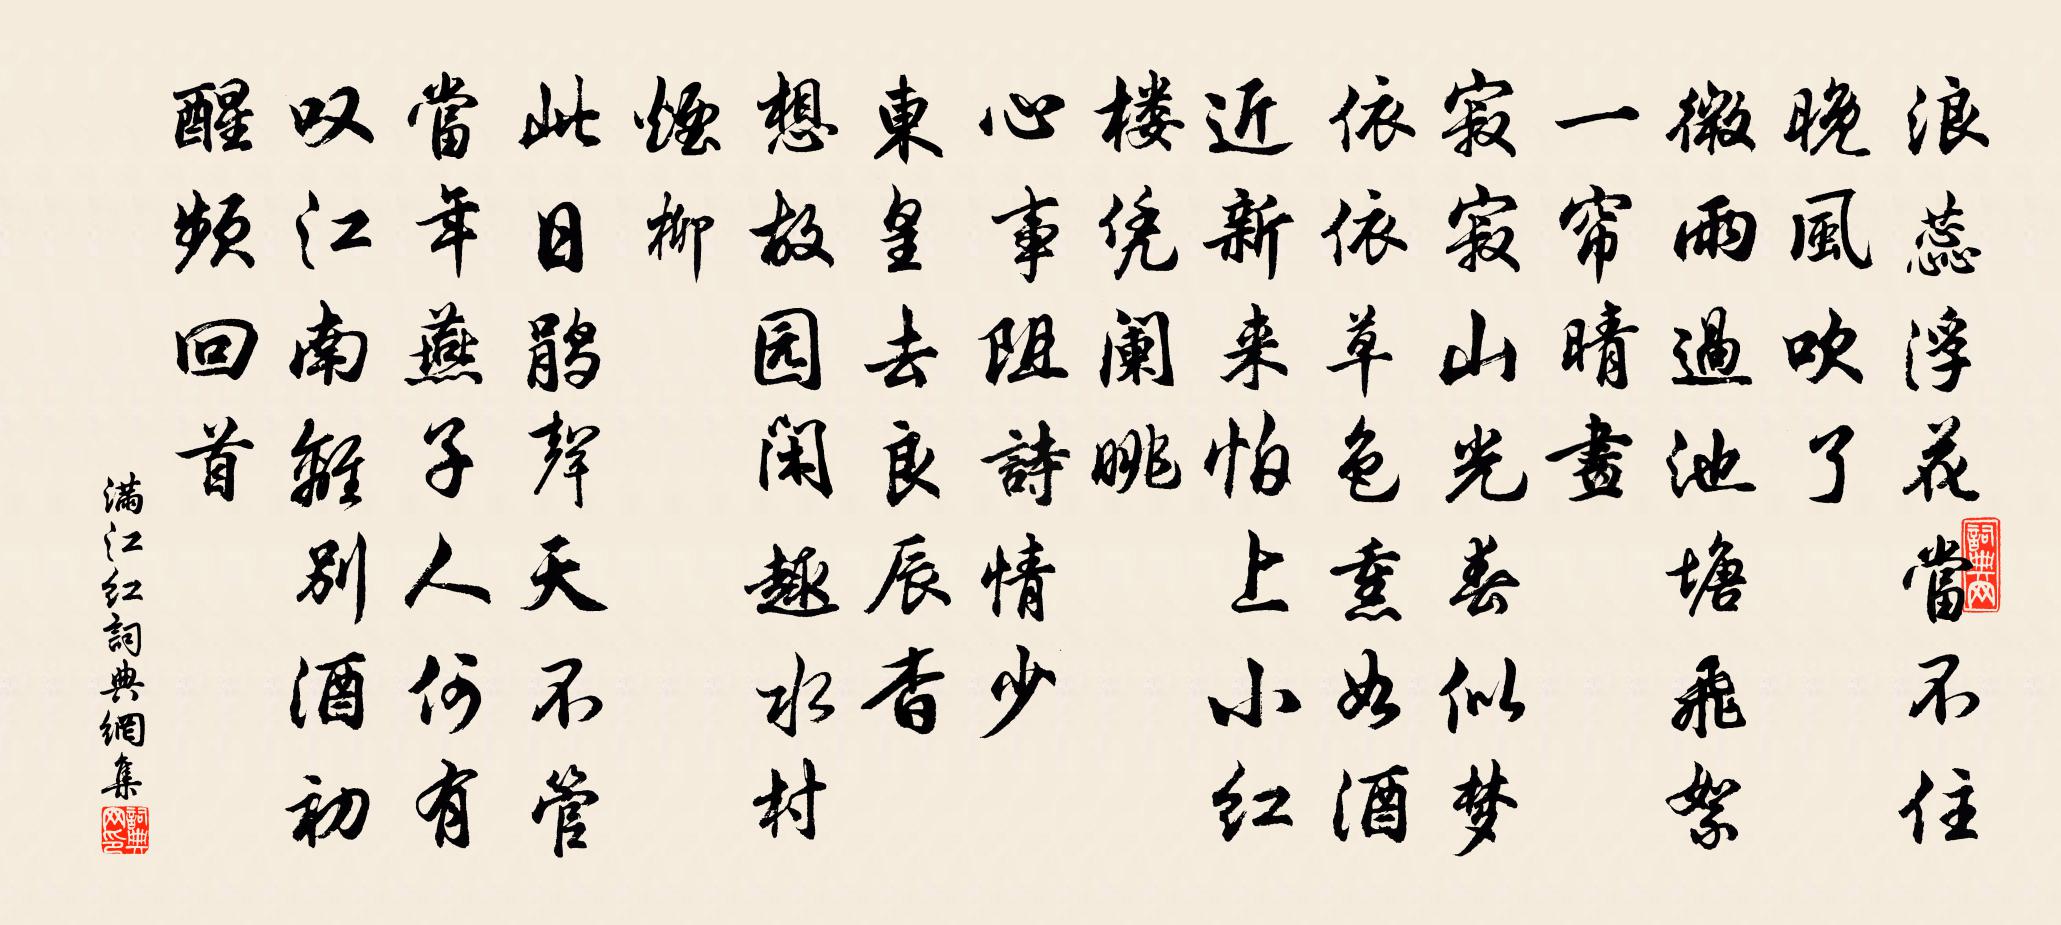 浪蕊浮花當不住
晚風吹了
微雨過池塘飛絮
一帘晴晝
寂寂山光春似梦
依依草色熏如酒
近新来怕上小红
楼凭阑眺
心事阻詩情少
東皇去良辰杳
想故园闲趣水村
煙柳
此日鹃聲天不管
當年燕子人何有
叹江南離别酒初
醒频回首
满江红詞典網集
詞典网
詞典网印